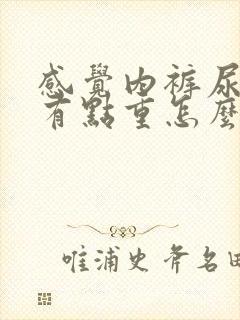 感覺內裤尿
有點重怎麼
唯浦史斧名田